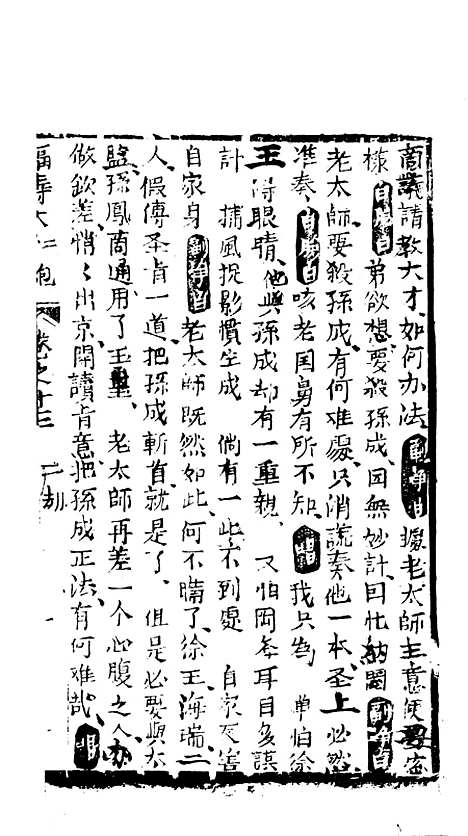 商議請教大才如何办法副净白據老太師主意便要怎
樣自唱白弟欲想要殺孫成因無妙計回忙納悶副净白
老太師要殺孫成有何难處只消謊奏他一本圣上必然
准奏自唱白咳老国舅有所不知唱我只為 单怕徐
王得眼睛他與孫成却有一重親 又怕岡奉耳目多謀
計 捕風捉影慣生成 倘有一此不到處 自家反害
自家身副净白老太師既然如此何不瞒了徐王海瑞二
人假傳圣旨一道把孫成斬首就是了但是必要與太
監孫鳳商通用了玉璽 老太師再差一个心腹之人办
做欽差悄々出京開讀旨意把孫成正法有何难哉唱
福壽大紅袍 卷之十三 二刧